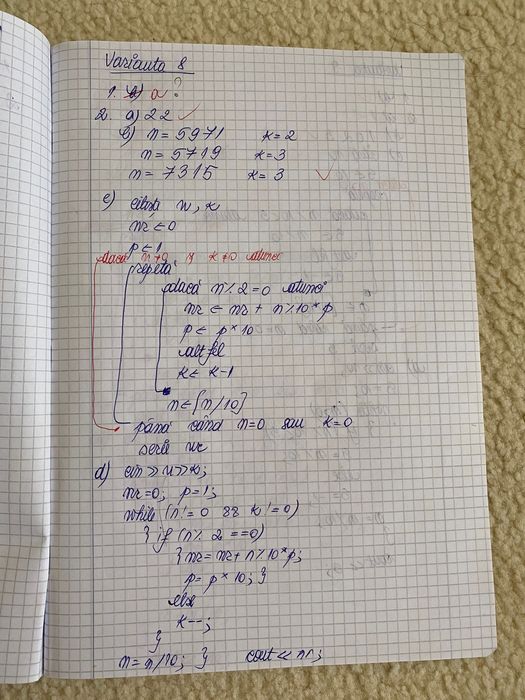 Varianta 8
1. a ?
2. a) 22 ✓
b) n = 5971 k = 2
n = 5719 k = 3
n = 7315 k = 3 ✓
c) citește n, k
nr ← 0
p ← 1
dacă n≠0 și k≠0 atunci
repetă
dacă n%2=0 atunci
nr ← nr + n%10*p
p ← p*10
altfel
k ← k-1
n ← [n/10]
până când n=0 sau k=0
scrie nr
d) cin>>n>>k;
nr=0; p=1;
while (n!=0 && k!=0)
} if (n% 2 ==0)
} nr=nr+n%10*p;
p= p*10; }
else
k--;
}
n=n/10; } cout<<nr;